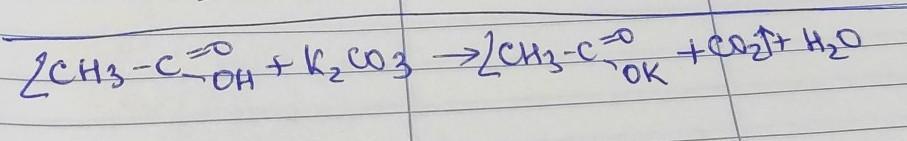 2CH3-C=O-OH + K2CO3 → 2CH3-C=O-OK + CO2↑ + H2O